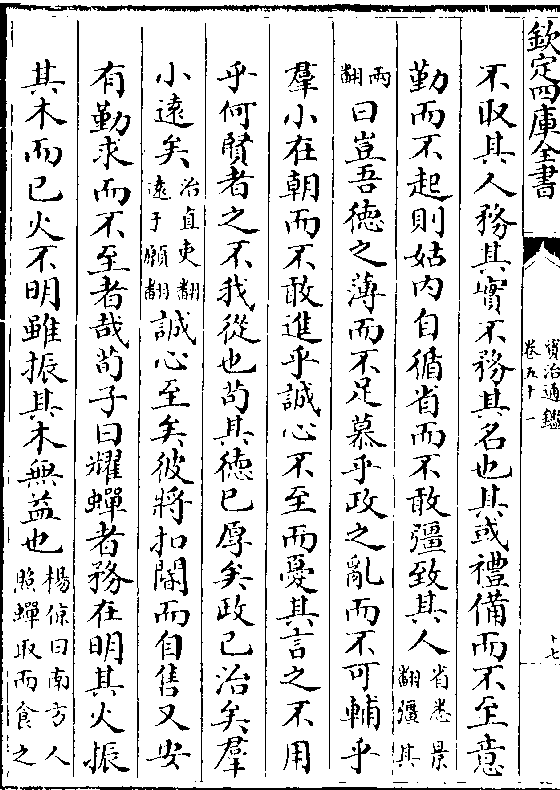 欽定四庫全書
資治通鑑
卷五十一
十七
不取其人務其實不務其名也其或禮備而不至意
勤而不起則姑内自循省而不敢彊致其人省悉景翻彊其
兩翻曰豈吾德之薄而不足慕乎政之亂而不可輔乎
羣小在朝而不敢進乎誠心不至而憂其言之不用
乎何賢者之不我從也苟其德已厚矣政已治矣羣
小遠矣治直吏翻遠于願翻誠心至矣彼將扣閽而自售又安
有勤求而不至者哉荀子曰耀蟬者務在明其火振
其木而已火不明雖振其木無益也楊倞曰南方人照蟬取而食之